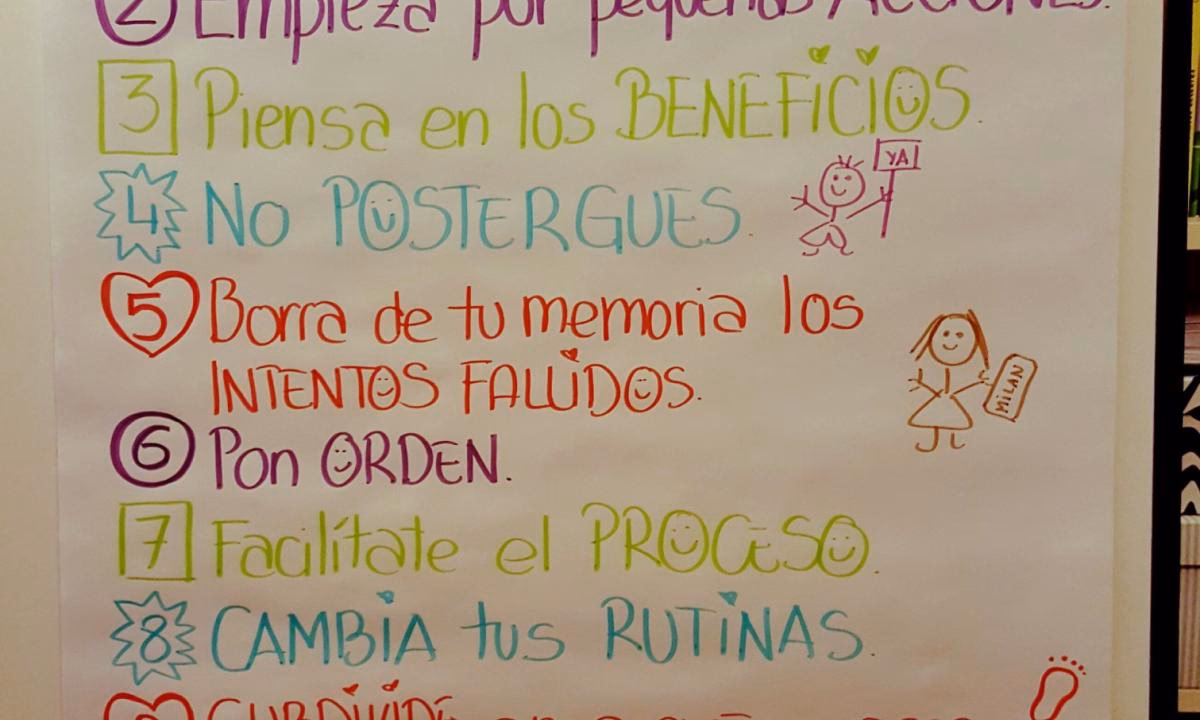 2 Empieza por pequeñas ACCIONES.
3 Piensa en los BENEFiCiOS.
4 No POSTERGUES.
YA!
5 Borra de tu memoria los
INTENTOS FALLiDOS.
MILAN
6 Pon ORDEN.
7 Facilítate el PROCESO.
8 CAMBiA tus RUTiNAS.